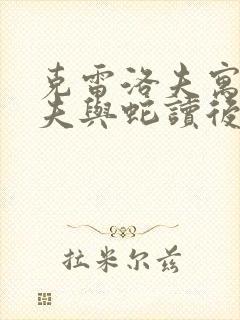 克雷洛夫寓
夫與蛇讀後
拉米尔茲